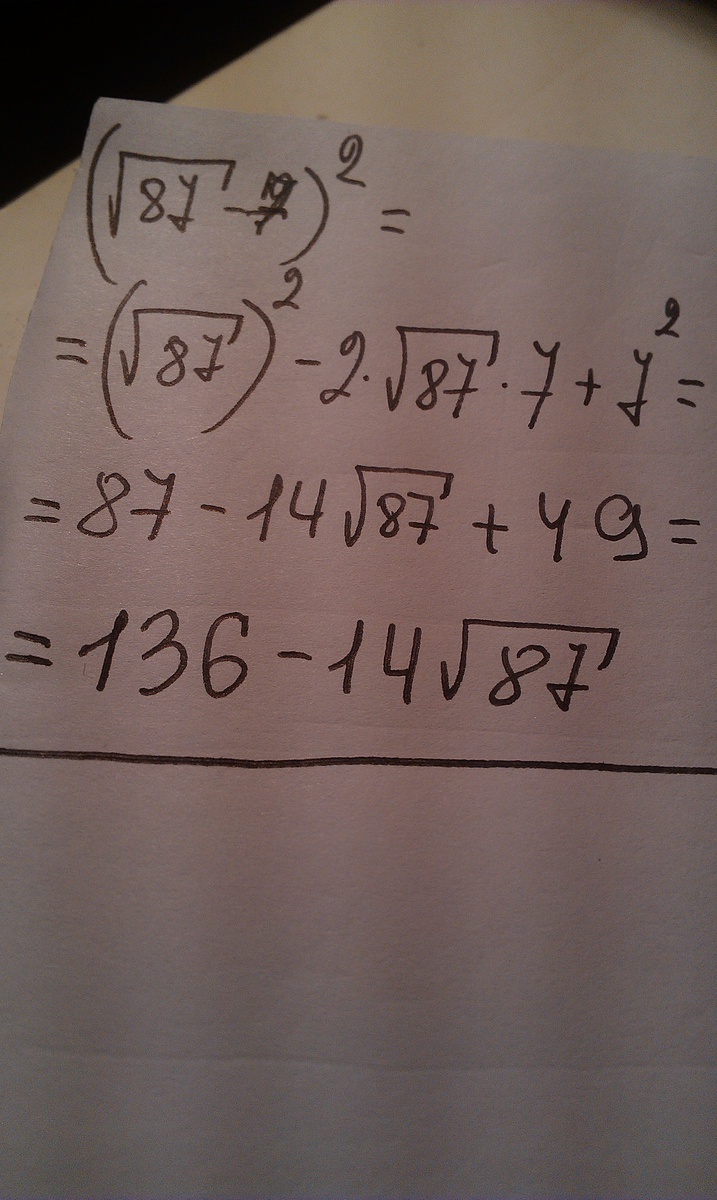 (√87 - 7)² =
= (√87)² - 2·√87·7 + 7² =
= 87 - 14√87 + 49 =
= 136 - 14√87